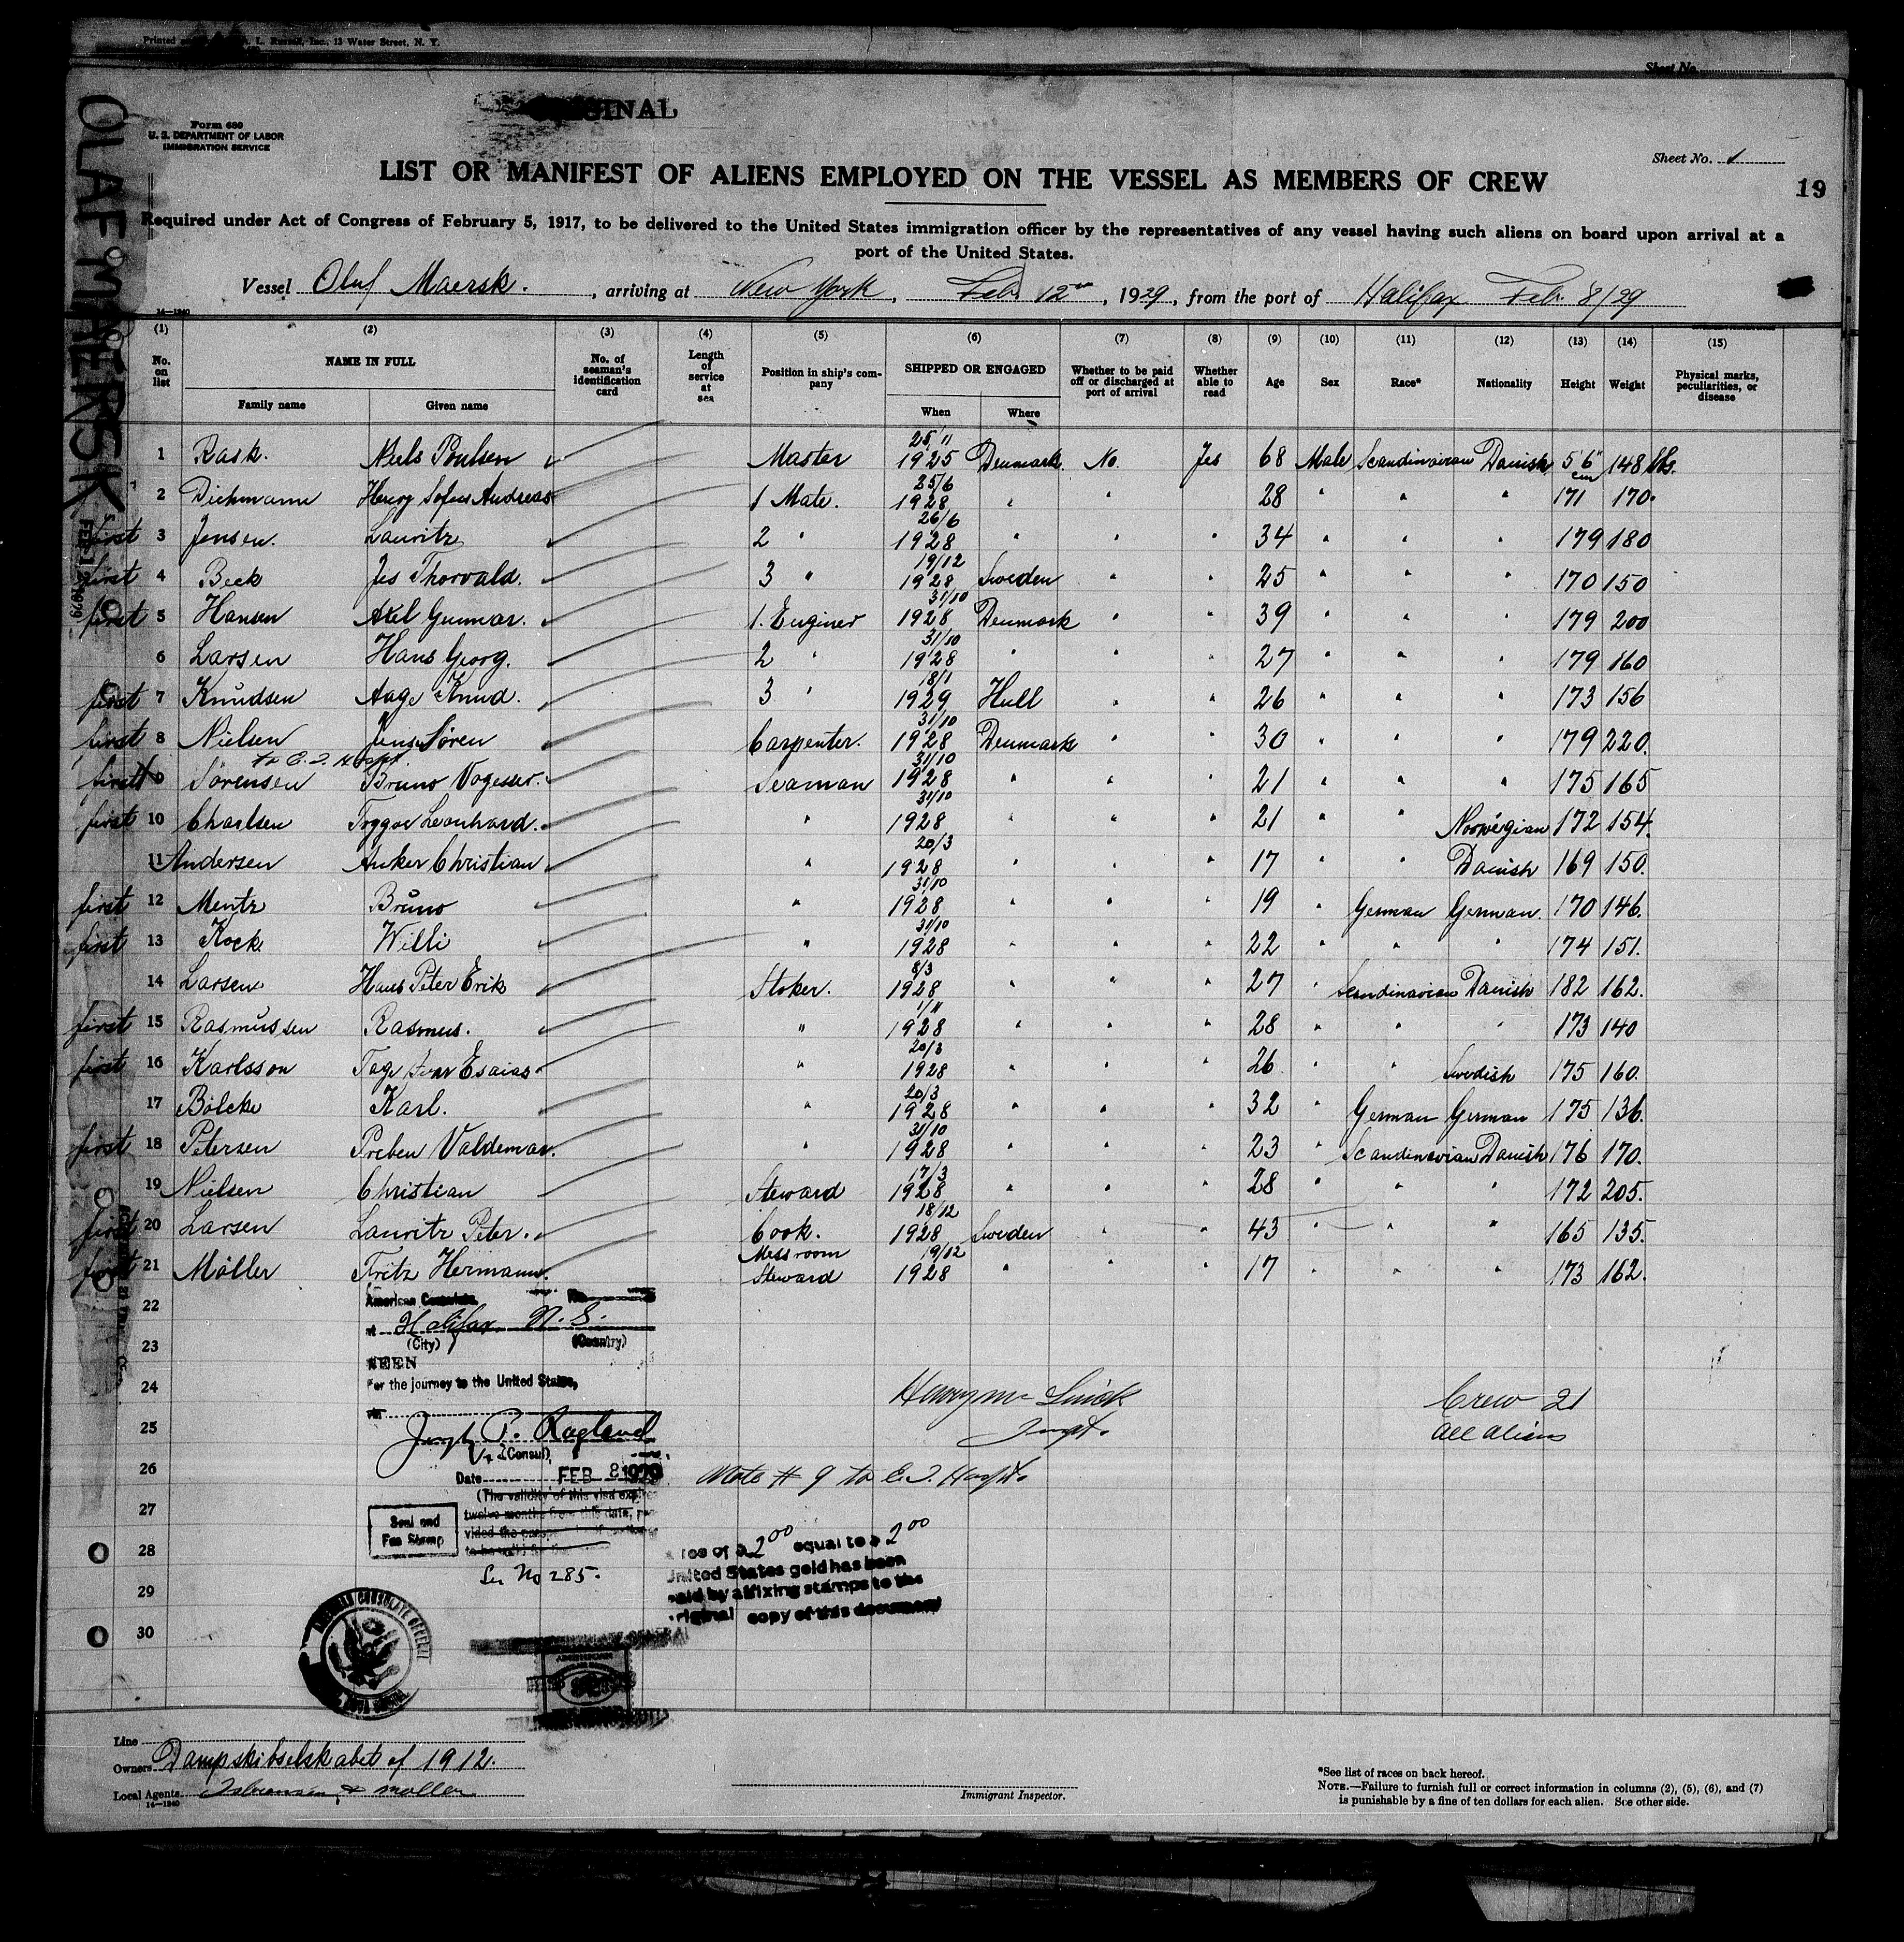 L. Russell, Inc., 13 Water Street, N. Y.
Sheet No.
Form 680
U. S. DEPARTMENT OF LABOR
IMMIGRATION SERVICE
Sheet No. 1
19
LIST OR MANIFEST OF ALIENS EMPLOYED ON THE VESSEL AS MEMBERS OF CREW
Required under Act of Congress of February 5, 1917, to be delivered to the United States immigration officer by the representatives of any vessel having such aliens on board upon arrival at a
port of the United States.
Vessel Oluf Maersk. , arriving at New York, Feb. 12th, 1929, from the port of Halifax Feb. 8/29
OLAF MAERSK
14—1240
(1) (2) (3) (4) (5) (6) (7) (8) (9) (10) (11) (12) (13) (14) (15)
No. on list NAME IN FULL No. of seaman's identification card Length of service at sea Position in ship's company SHIPPED OR ENGAGED Whether to be paid off or discharged at port of arrival Whether able to read Age Sex Race* Nationality Height Weight Physical marks, peculiarities, or disease
Family name Given name When Where
1 Rask. Niels Poulsen Master 25/11 1925 Denmark. No. Yes 68 Male Scandinavian Danish 5'6" 148 lbs.
2 Diekmann Henry Sofus Andreas 1 Mate. 25/6 1928 " " " 28 " " " cm 171 170.
first 3 Jensen. Lauritz 2 " 26/6 1928 " " " 34 " " " 179 180
first 4 Beck Jes Thorvald. 3 " 19/12 1928 Sweden " " 25 " " " 170 150
first 5 Hansen Axel Gunnar. 1. Enginer 31/10 1928 Denmark " " 39 " " " 179 200
6 Larsen Hans Georg. 2 " 31/10 1928 " " " 27 " " " 179 160
first 7 Knudsen Aage Knud. 3 " 18/1 1929 Hull " " 26 " " " 173 156
first 8 Nielsen Jens Sören Carpenter. 31/10 1928 Denmark " " 30 " " " 179 220.
To E. I. Hospt.
first 9 Sørensen Bruno Seaman 31/10 1928 " " " 21 " " " 175 165
first 10 Charlsen Tryggve Leonhard. " 31/10 1928 " " " 21 " " Norwegian 172 154.
11 Andersen Anker Christian " 20/3 1928 " " " 17 " " Danish 169 150.
first 12 Mentz Bruno " 31/10 1928 " " " 19 " German German. 170 146.
first 13 Kock Willi " 31/10 1928 " " " 22 " " " 174 151.
14 Larsen Hans Peter Erik Stoker. 8/3 1928 " " " 27 " Scandinavian Danish 182 162.
first 15 Rasmussen Rasmus. " 1/11 1928 " " " 28 " " " 173 140
first 16 Karlsson Tage Ivar Esaias " 20/3 1928 " " " 26 " " Swedish 175 160.
17 Bölcke Karl. " 20/3 1928 " " " 32 " German German 175 136.
first 18 Petersen Preben Valdemar. " 31/10 1928 " " " 23 " Scandinavian Danish 176 170.
19 Nielsen Christian Steward 17/3 1928 " " " 28 " " " 172 205.
first 20 Larsen Lauritz Peter. Cook. 18/12 1928 Sweden " " 43 " " " 165 135.
first 21 Möller Fritz Hermann. Messroom Steward 19/12 1928 " " " 17 " " " 173 162.
22
23
24
25
26
27
28
29
30
American Consulate
at Halifax, N. S.
(City) (Country)
SEEN
For the journey to the United States,
Joseph P. Ragland
Vice (Consul)
Date FEB 8 1929
(The validity of this visa
twelve months from this date,
Seal and
Fee Stamp
Ser No 285.
Inspt.
Crew 21
All aliens
Note # 9 to E. I. Hospt.
Fee of $ 2.00 equal to $ 2.00
United States gold has been
paid by affixing stamps to the
original copy of this document
AMERICAN CONSULATE GENERAL
Line
Owners Dampskibselskabet of 1912.
Local Agents. & Moller
14—1240
Immigrant Inspector.
*See list of races on back hereof.
NOTE.—Failure to furnish full or correct information in columns (2), (5), (6), and (7)
is punishable by a fine of ten dollars for each alien. See other side.